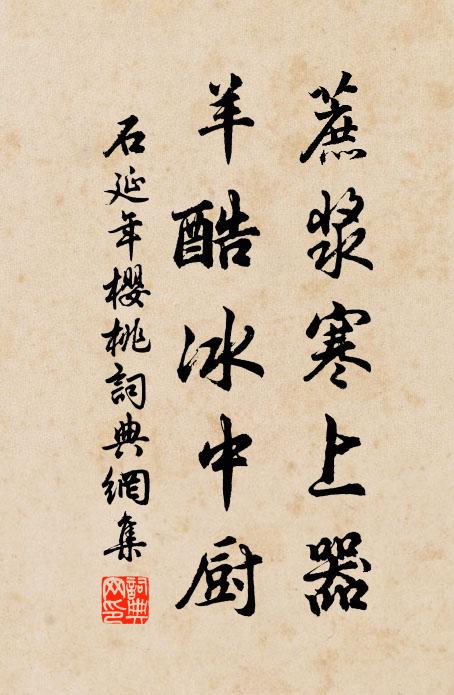 蔗漿寒上器
羊酷冰中厨
石延年櫻桃詞典網集
詞典網印